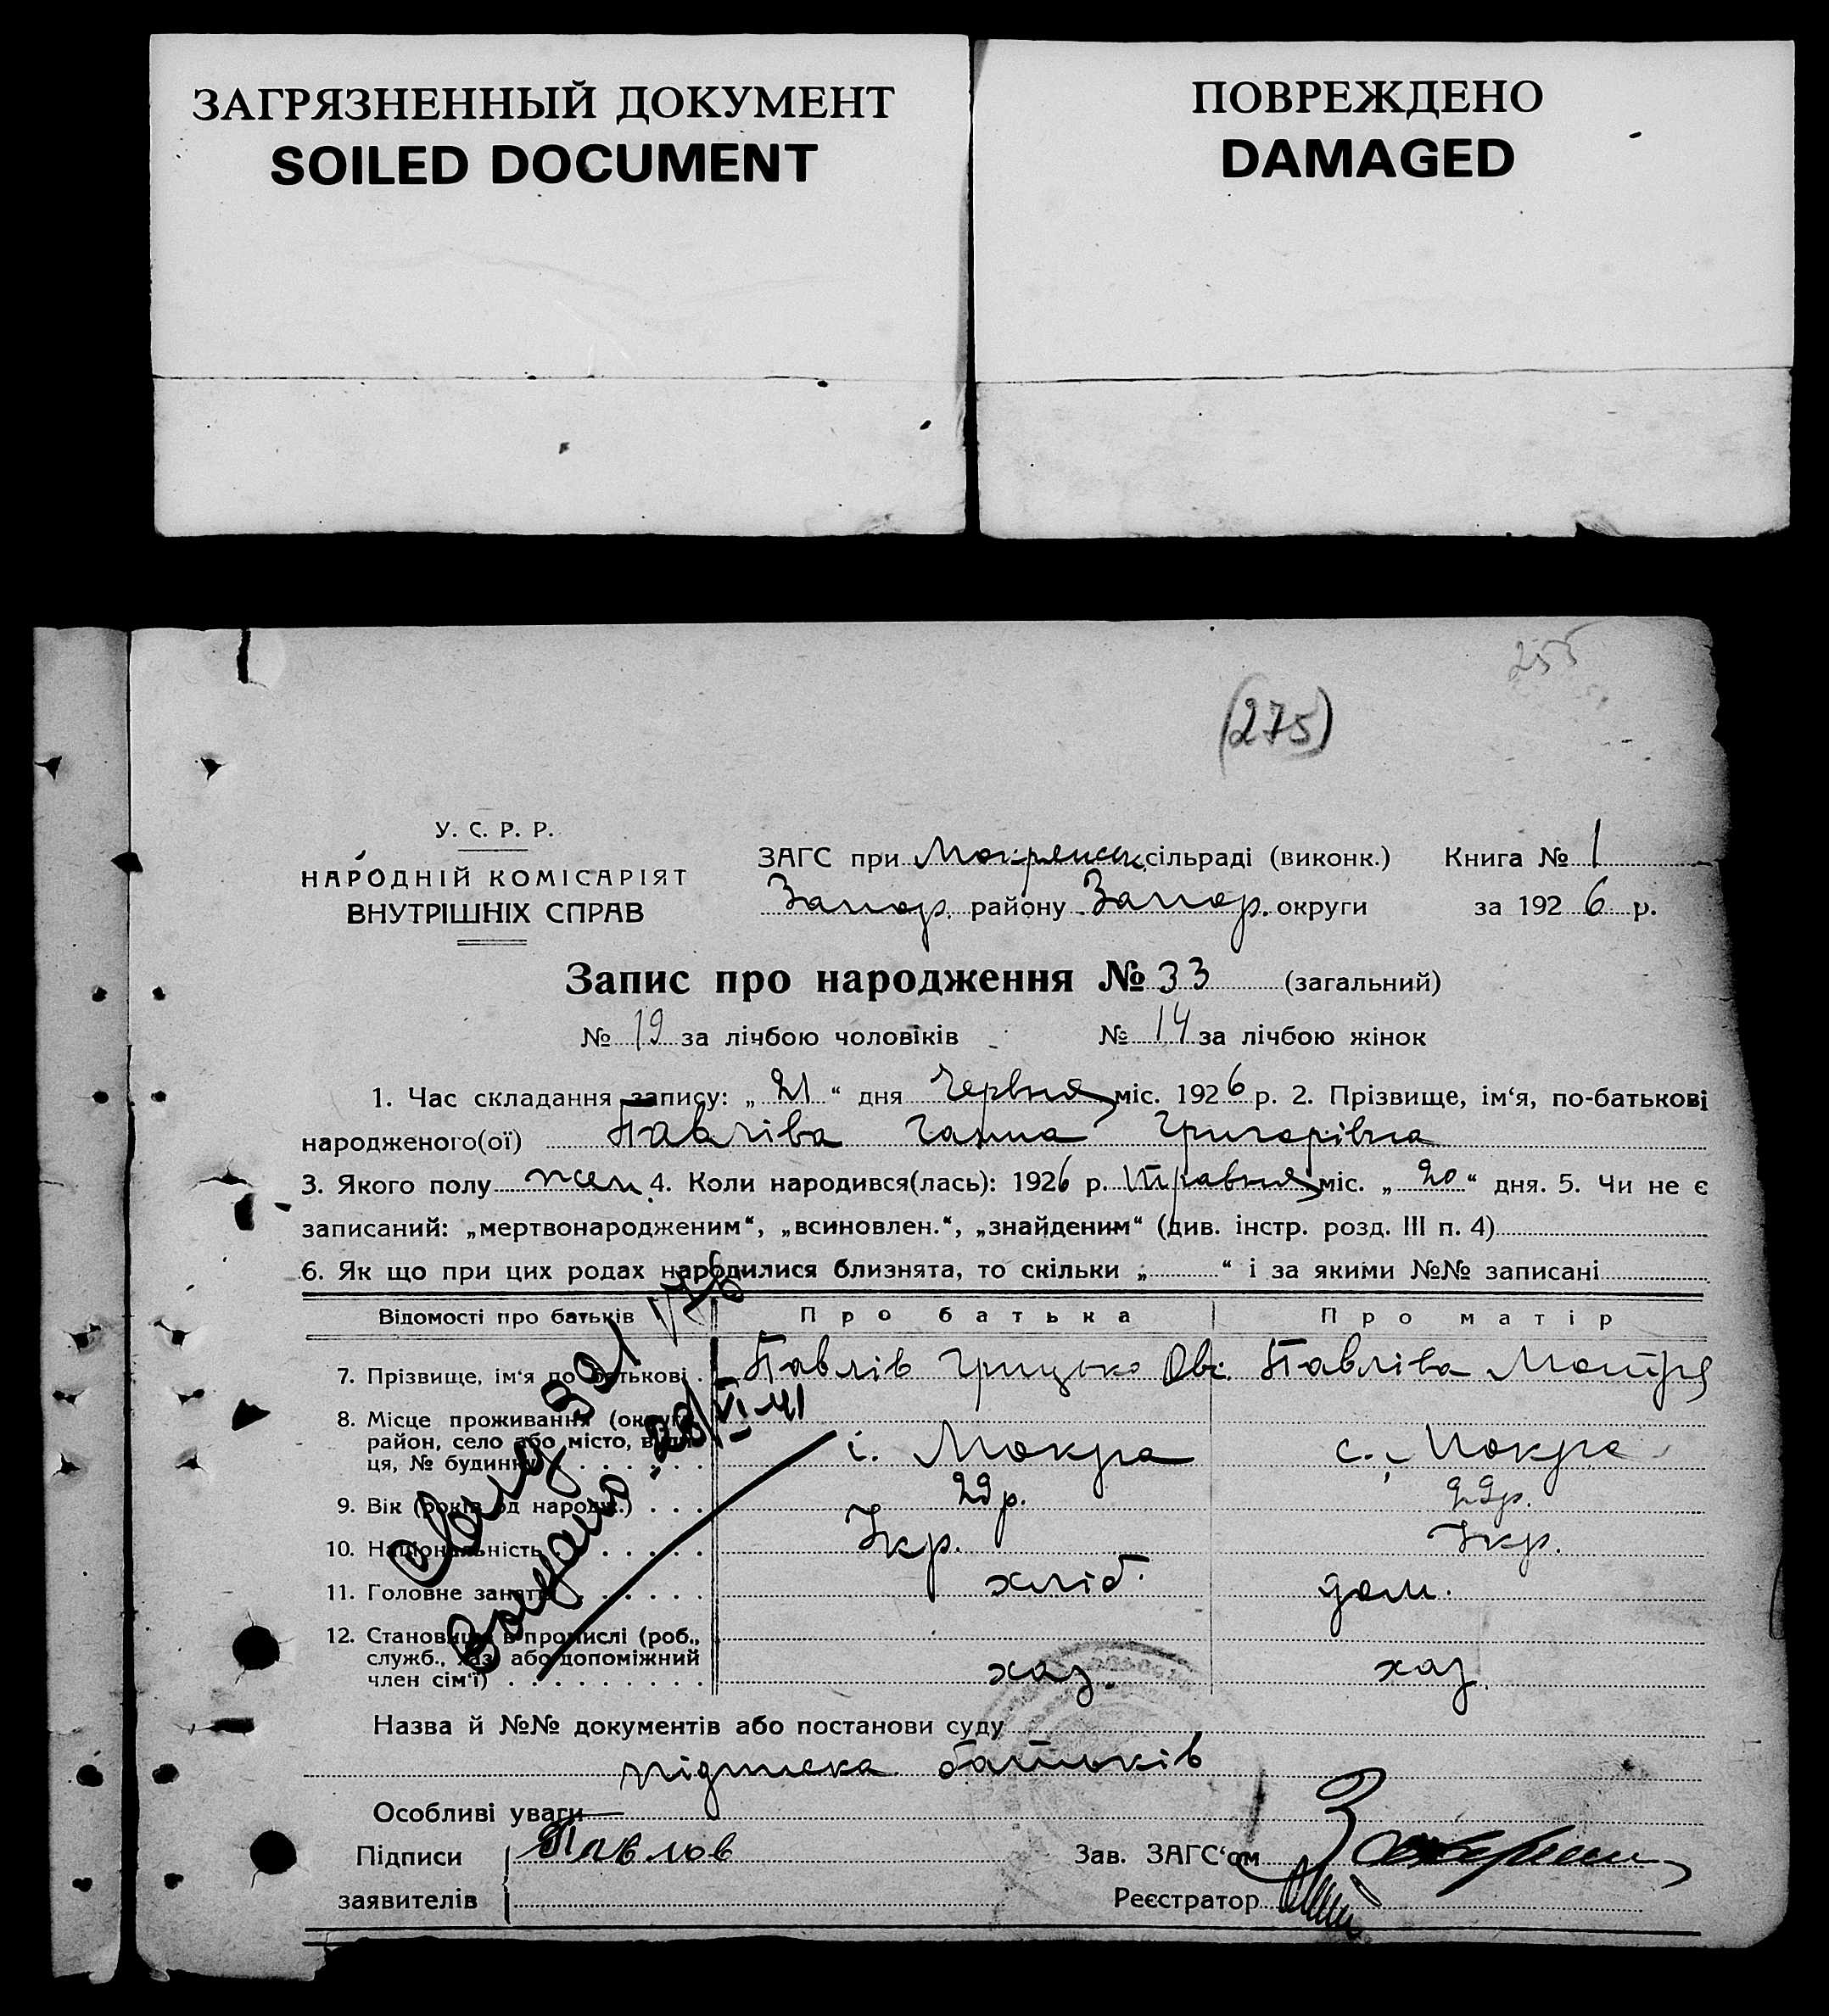 ЗАГРЯЗНЕННЫЙ ДОКУМЕНТ
SOILED DOCUMENT
ПОВРЕЖДЕНО
DAMAGED
255
(275)
У. С. Р. Р.
НАРОДНІЙ КОМІСАРІЯТ
ВНУТРІШНІХ СПРАВ
ЗАГС при Мокрянск. сільраді (виконк.) Книга № 1
Запор. району Запор. округи за 1926 р.
Запис про народження № 33 (загальний)
№ 19 за лічбою чоловіків № 14 за лічбою жінок
1. Час складання запису: „21“ дня Червня міс. 1926 р. 2. Прізвище, ім‘я, по-батькові
народженого(ої) Павліва Ганна Григорівна
3. Якого полу жен. 4. Коли народився(лась): 1926 р. Травня міс. „20“ дня. 5. Чи не є
записаний: „мертвонародженим“, „всиновлен.“, „знайденим“ (див. інстр. розд. III п. 4)
6. Як що при цих родах народилися близнята, то скільки „ “ і за якими №№ записані
Відомості про батьків Про батька Про матір
7. Прізвище, ім‘я по батькові . Павлів Грицько Ов. Павліва Мотря
8. Місце проживання (округа,
район, село або місто, вули-
ця, № будинку) . . . . . . с. Мокра с. Мокра
9. Вік (років од народж.) . . . 29 р. 29 р.
10. Національність . . . . . . Укр. Укр.
11. Головне заняття . . . . . . хліб. дом.
12. Становище в промислі (роб.,
служб., хаз. або допоміжний
член сім‘ї) . . . . . . . . . хаз. хаз.
VI-41
Назва й №№ документів або постанови суду
підписка батьків
Особливі уваги —
Підписи Павлов Зав. ЗАГС‘ом
заявителів Реєстратор